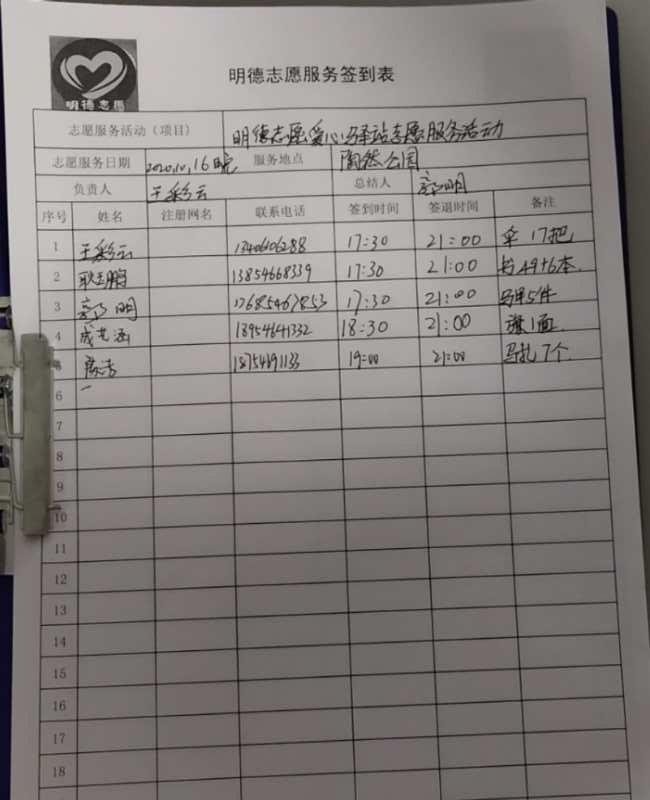 明德志愿
明德志愿服务签到表
志愿服务活动（项目） 明德志愿爱心驿站志愿服务活动
志愿服务日期 2020.10.16晚 服务地点 陶然公园
负责人 王彩云 总结人 郭明
序号 姓名 注册网名 联系电话 签到时间 签退时间 备注
1 王彩云 17:30 21:00 伞 17把
2 耿玉鹏 13854668339 17:30 21:00 书49+6本
3 郭明 17685467853 17:30 21:00 马甲5件
4 18954641332 18:30 21:00 旗1面
5 18754691133 19:00 21:00 马扎7个
6
7
8
9
10
11
12
13
14
15
16
17
18